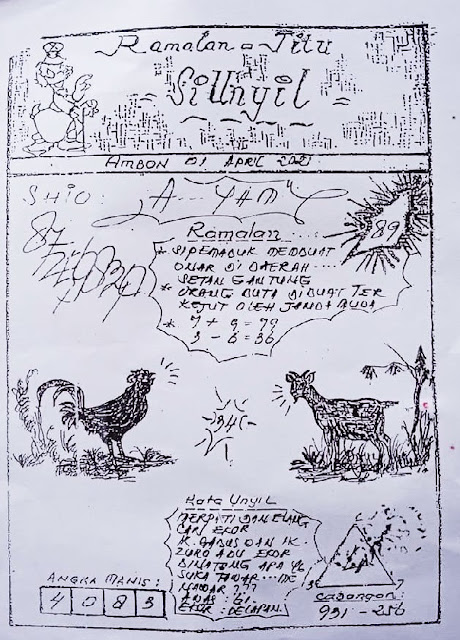 Ramalan - Jitu
Si Unyil
AMBON 01 APRIL 2021
SHIO : A - YAM
89
Ramalan
* SIPEMABUK MEMBUAT
ONAR DI DAERAH ....
SETAN GANTUNG
* ORANG BUTA DIBUAT TER
KEJUT OLEH JANDA MUDA
* 7 + 9 = 79
3 - 6 = 36
Kata Unyil
MERPATI DAN ELANG
CARI EKOR
IK. GABUS DAN IK.
ZURO ADU EKOR
BINATANG APA YG
SUKA TAWAR
EKOR : DELAPAN
ANGKA MANIS :
4 0 8 3
Cabangan :
931 - 256